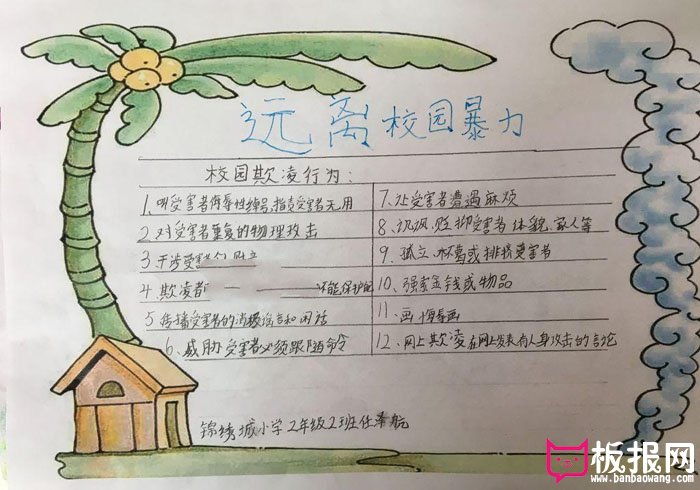 远离校园暴力
校园欺凌行为：
1、叫受害者侮辱性绰号,指责受害者无用
2、对受害者重复的物理攻击
3、干涉受害
4、欺凌者 不能保护
5、传播受害者的消极谣言和闲话
6、威胁受害者必须跟随命令
7、让受害者遭遇麻烦
8、讥讽、贬抑受害者体貌、家人等
9、孤立、杯葛或排挤受害者
10、强索金钱或物品
11、画侮辱画
12、网上欺凌在网上发表有人身攻击的言论
锦绣城小学2年级2班任泽航
板报网
www.banbaowang.com